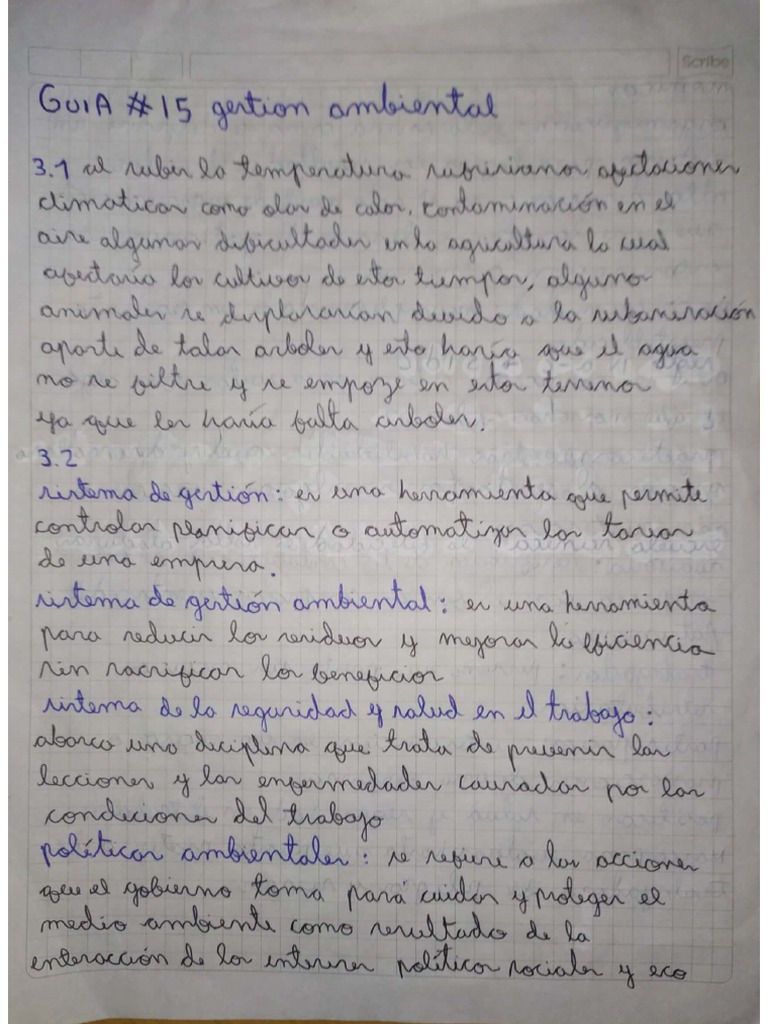 Scribe
GUIA #15 gestion ambiental
3.1 al subir la temperatura subririamos afectaciones
climaticas como olas de calor, contaminación en el
aire algunas dificultades en la agricultura la cual
afectaría los cultivos de estos tiempos, alguno
animales se desplazarían devido a la urbanización
aparte de talar arboles y esto haría que el agua
no se filtre y se empoze en estos terrenos
ya que les haría falta arboles.
3.2
sistema de gestión: es una herramienta que permite
controlar planificar o automatizar las tareas
de una empresa.
sistema de gestión ambiental: es una herramienta
para reducir los residuos y mejorar la eficiencia
sin sacrificar los beneficios
sistema de la seguridad y salud en el trabajo:
abarca una disciplina que trata de prevenir las
lecciones y las enfermedades causadas por las
condiciones del trabajo
políticas ambientales: se refiere a las acciones
que el gobierno toma para cuidar y proteger el
medio ambiente como resultado de la
enteracción de los intereses políticos sociales y eco